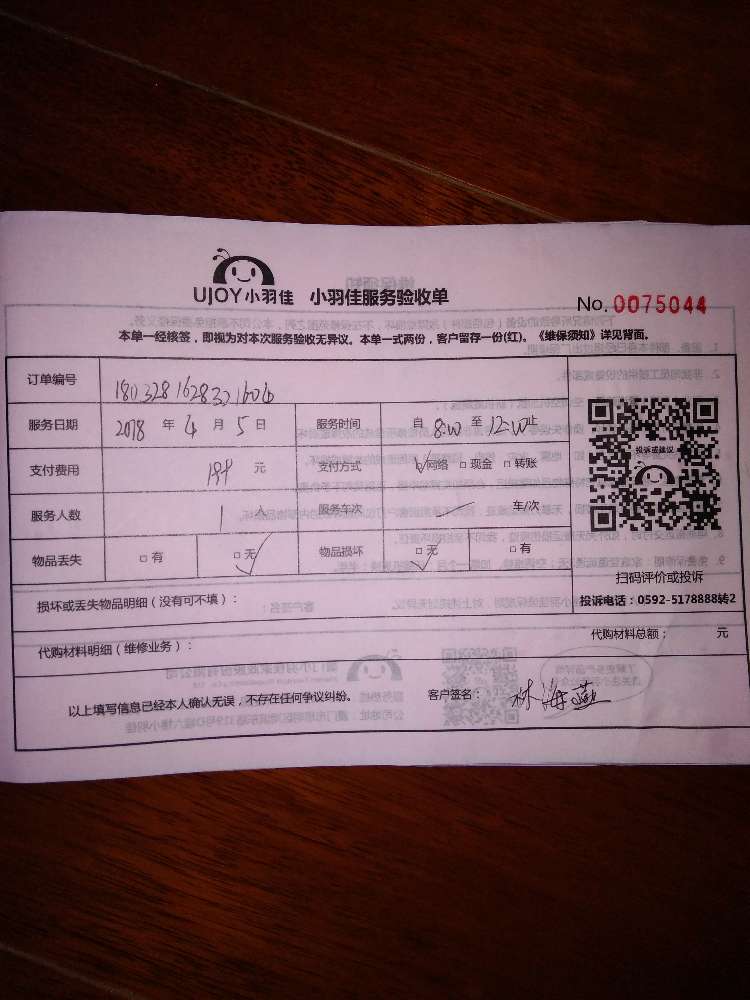 UJOY小羽佳 小羽佳服务验收单
No. 0075044
本单一经核签，即视为对本次服务验收无异议。本单一式两份，客户留存一份(红)。《维保须知》详见背面。
订单编号 180328162832160​4
服务日期 2018 年 4 月 5 日 服务时间 自 8:00 至 12:00 止
支付费用 元 支付方式 网络 □ 现金 □ 转账
服务人数 1 人 服务车次 车/次
物品丢失 □ 有 □ 无 物品损坏 □ 无 □ 有
投诉或建议
扫码评价或投诉
投诉电话：0592-5178888转2
损坏或丢失物品明细（没有可不填）：
代购材料明细（维修业务）：
代购材料总额： 元
以上填写信息已经本人确认无误，不存在任何争议纠纷。
客户签名： 林海燕